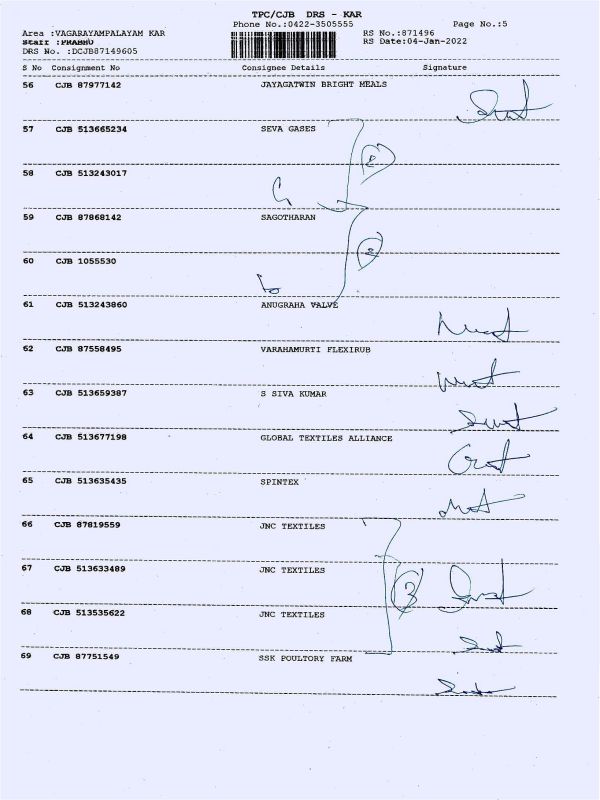 TPC/CJB DRS - KAR
Phone No.:0422-3505555 Page No.:5
Area :VAGARAYAMPALAYAM KAR RS No.:871496
Staff :PRABHU RS Date:04-Jan-2022
DRS No. :DCJB87149605
S No Consignment No Consignee Details Signature
56 CJB 87977142 JAYAGATWIN BRIGHT MEALS
57 CJB 513665234 SEVA GASES
58 CJB 513243017
59 CJB 87868142 SAGOTHARAN
60 CJB 1055530
61 CJB 513243860 ANUGRAHA VALVE
62 CJB 87558495 VARAHAMURTI FLEXIRUB
63 CJB 513659387 S SIVA KUMAR
64 CJB 513677198 GLOBAL TEXTILES ALLIANCE
65 CJB 513635435 SPINTEX
66 CJB 87819559 JNC TEXTILES
67 CJB 513633489 JNC TEXTILES
3
68 CJB 513535622 JNC TEXTILES
69 CJB 87751549 SSK POULTORY FARM